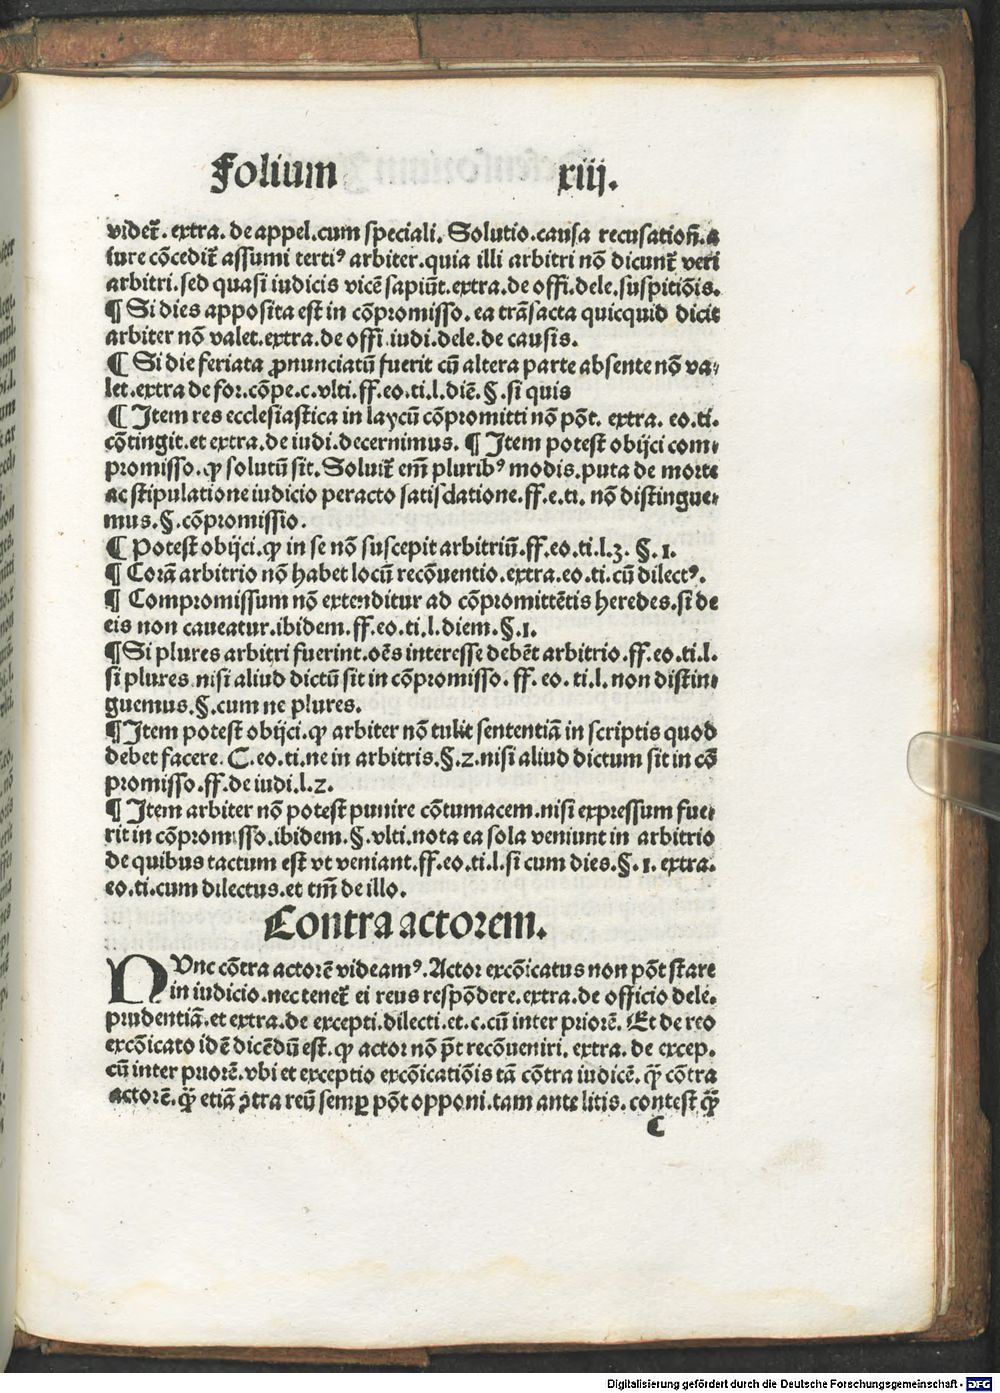 Folium xiij.
videt̃. extra. de appel. cum speciali. Solutio. causa recusation̄. a
iure cōcedit̃ assumi tertiꝰ arbiter. quia illi arbitri nō dicunt̃ veri
arbitri. sed quasi iudicis vicē sapiūt. extra. de offi. dele. suspitiōis.
¶ Si dies apposita est in cōpromisso. ea trāsacta quicquid dicit
arbiter nō valet. extra. de offi. iudi. dele. de causis.
¶ Si die feriata ꝓnunciatū fuerit cū altera parte absente nō va⸗
let. extra de for. cōpe. c. vlti. ff. eo. ti. l. diē. §. si quis
¶ Item res ecclesiastica in laycū cōpromitti nō pōt. extra. eo. ti.
cōtingit. et extra. de iudi. decernimus. ¶ Item potest obijci com⸗
promisso. ꝙ solutū sit. Soluit̃ em̄ pluribꝰ modis. puta de morte
ac stipulatione iudicio peracto satisdatione. ff. e. ti. nō distingue⸗
mus. §. cōpromissio.
¶ Potest obijci. ꝙ in se nō suscepit arbitriū. ff. eo. ti. l. 3. §. 1.
¶ Corā arbitrio nō habet locū recōuentio. extra. eo. ti. cū dilectꝰ.
¶ Compromissum nō extenditur ad cōpromittētis heredes. si de
eis non caueatur. ibidem. ff. eo. ti. l. diem. §. 1.
¶ Si plures arbitri fuerint. oēs interesse debēt arbitrio. ff. eo. ti. l.
si plures nisi aliud dictū sit in cōpromisso. ff. eo. ti. l. non distin⸗
guemus. §. cum ne plures.
¶ Item potest obijci. ꝙ arbiter nō tulit sententiā in scriptis quod
debet facere. C. eo. ti. ne in arbitris. §. 2. nisi aliud dictum sit in cō
promisso. ff. de iudi. l. 2.
¶ Item arbiter nō potest punire cōtumacem. nisi expressum fue⸗
rit in cōpromisso. ibidem. §. vlti. nota ea sola veniunt in arbitrio
de quibus tactum est vt veniant. ff. eo. ti. l. si cum dies. §. 1. extra.
eo. ti. cum dilectus. et tm̄ de illo.
Contra actorem.
NVnc cōtra actorē videamꝰ. Actor excōicatus non pōt stare
in iudicio. nec tenet̃ ei reus respōdere. extra. de officio dele.
prudentiā. et extra. de excepti. dilecti. et. c. cū inter priorē. Et de reo
excōicato idē dicēdū est. ꝙ actor nō pt̄ recōueniri. extra. de excep.
cū inter priorē. vbi et exceptio excōicatiōis tā cōtra iudicē. ꝙ̄ cōtra
actorē. ꝙ̄ etiā ꝯtra reū semꝑ pōt opponi. tam ante litis. contest ꝙ̄
c
Digitalisierung gefördert durch die Deutsche Forschungsgemeinschaft - DFG